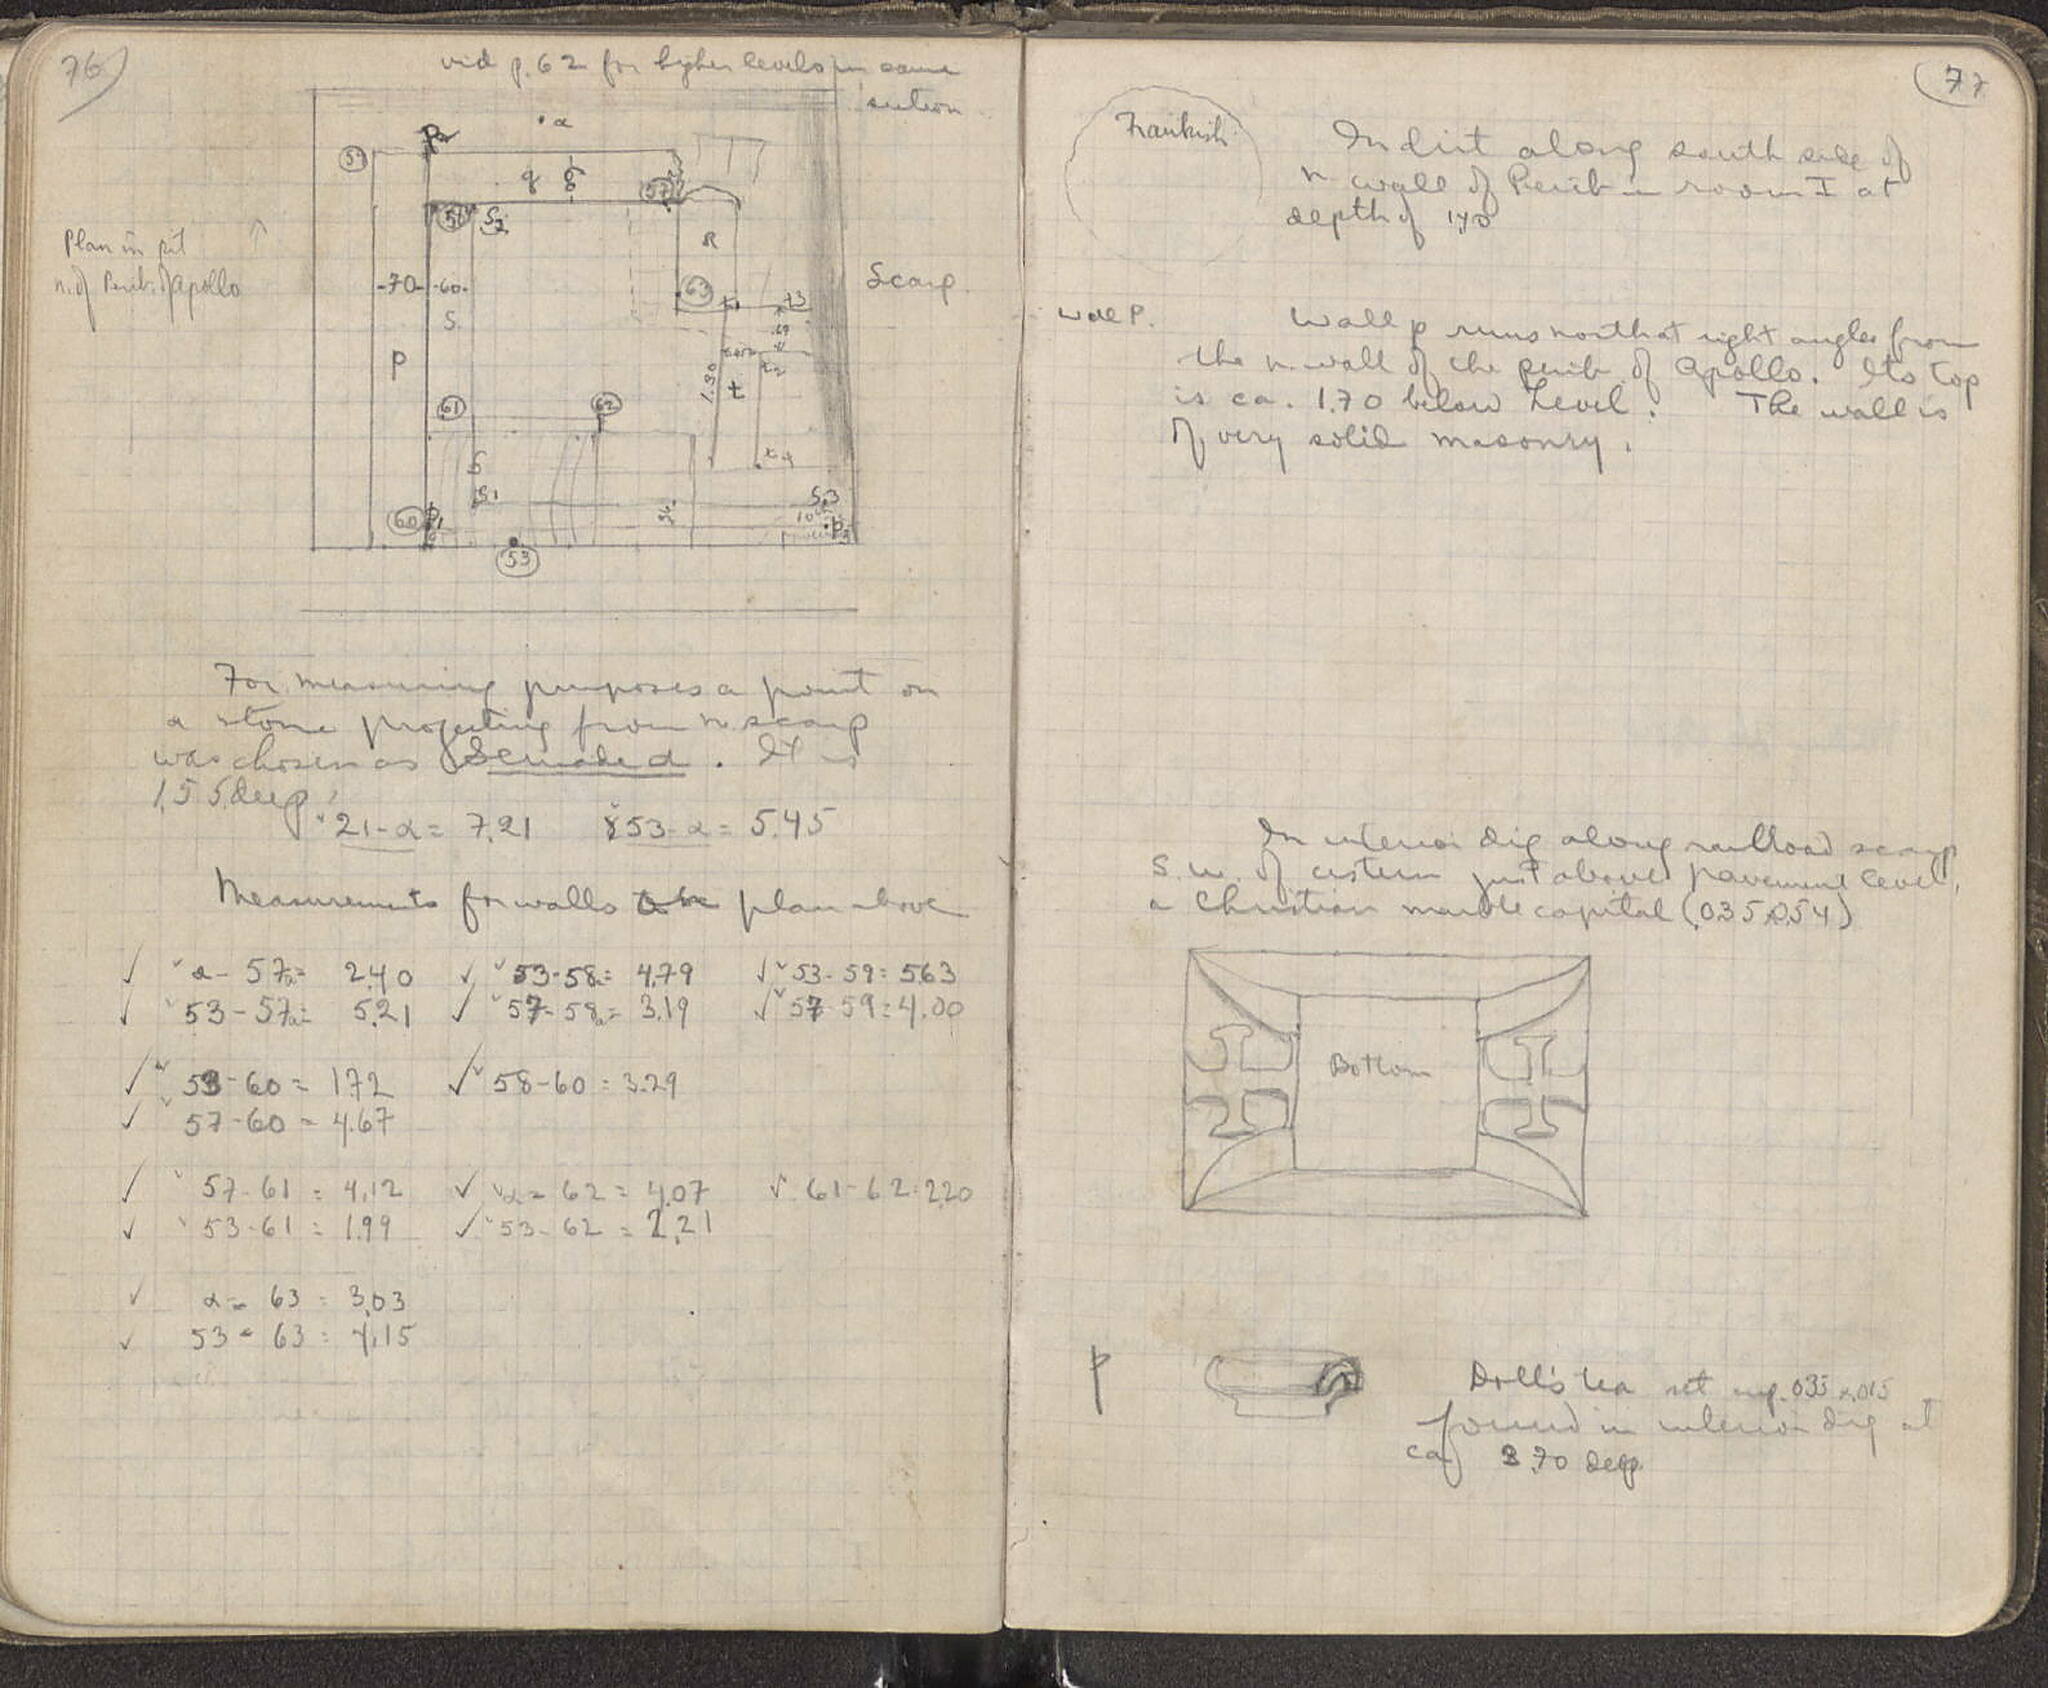 76
vid p. 62 for higher levels in same
section
• α
59
P2
q
g
57
58
S2
R
Plan in pit
n. of Perib. of Apollo
-70-
-60-
S
63
t1
t3
Scarp.
P
1.30
t2
t
61
62
S
t4
S1
S3
60
P1
53
For measuring purposes a point on
a stone projecting from n. scarp
was chosen as
. It is
1.55 deep.
21-α = 7.21 53-α = 5.45
Measurements for walls on plan above
α- 57a= 2.40 53-58a= 4.79 53-59= 5.63
53-57a= 5.21 57-58a= 3.19 57 59=4.00
53-60= 1.72 58-60=3.29
57-60= 4.67
57-61= 4.12 α- 62= 4.07 61-62=2.20
53-61= 1.99 53-62 = 2.21
α- 63= 3.03
53- 63= 4.15
77
Frankish
In dirt along south side of
n wall of Perib in room I at
depth of 1.70
Wall P.
Wall p runs north at right angles from
the n. wall of the perib. of Apollo. Its top
is ca. 1.70 below Level. The wall is
of very solid masonry.
In interior dig along railroad scarp
S.W. of cistern just above pavement level,
a Christian marble capital (0.35x0.54)
Bottom
P
Doll's tea set cup .035 x .015
found in interior dig at
ca 3.70 deep